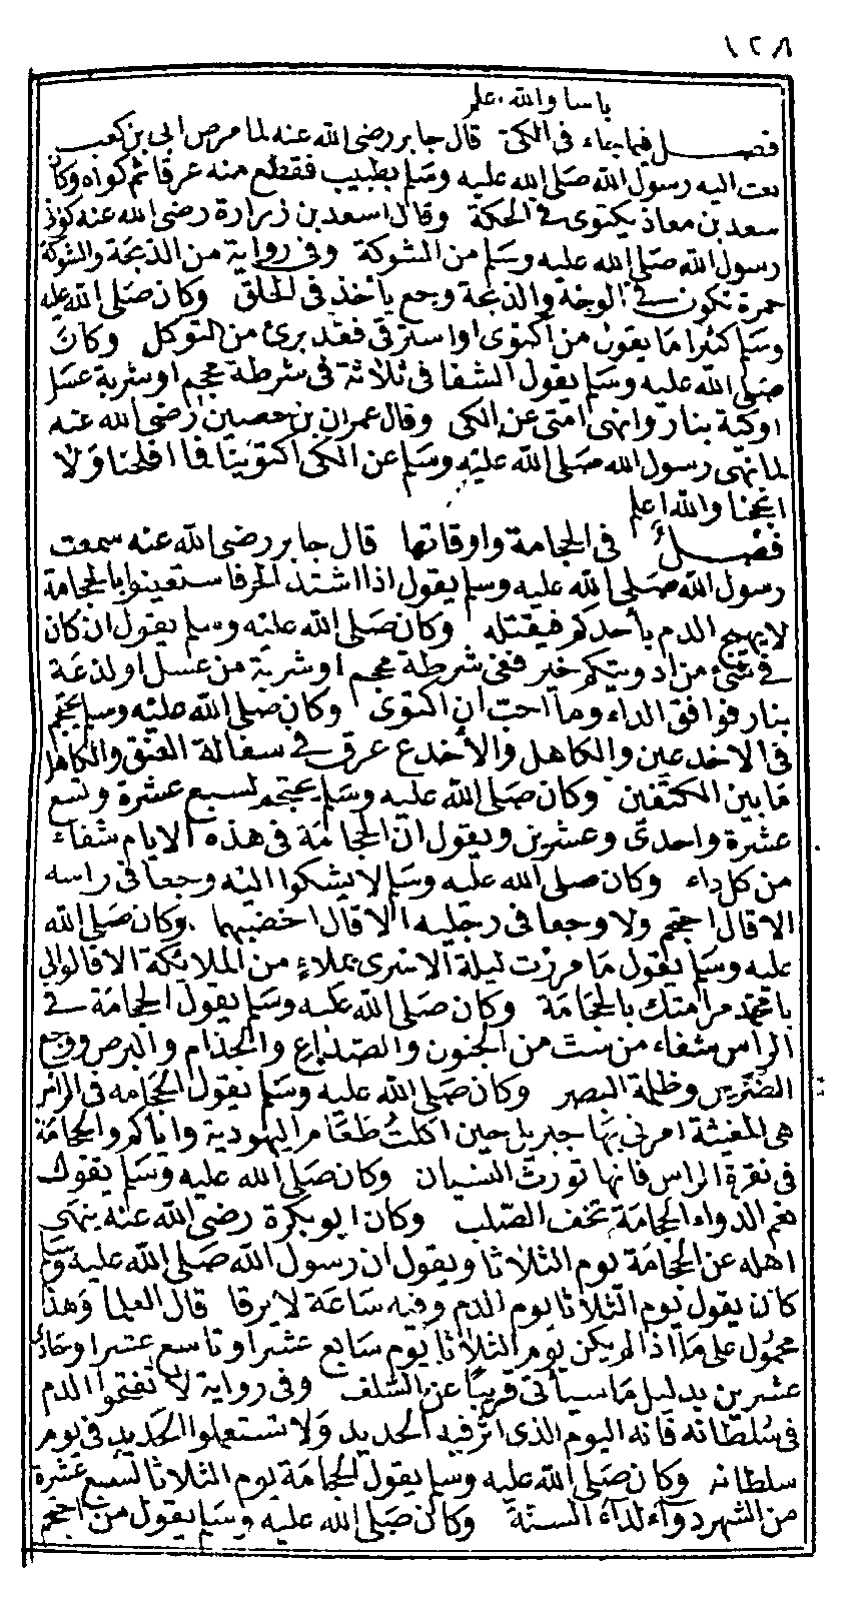 ١٢٨
باسا والله اعلم
فصل فيما جاء فى الكى قال جابر رضى الله عنه لما مرض ابى بن كعب
بعث اليه رسول الله صلى الله عليه وسلم بطبيب فقطع منه عرقا ثم كواه وكان
سعد بن معاذ يكتوى فى اكحله وقال اسعد بن زرارة رضى الله عنه كوانى
رسول الله صلى الله عليه وسلم من الشوكة وفى رواية من الذبحة والشوكة
حمرة تكون فى الوجه والذبحة وجع يأخذ فى الحلق وكان صلى الله عليه
وسلم كثيرا ما يقول من اكتوى او استرقى فقد برئ من التوكل وكان
صلى الله عليه وسلم يقول الشفا فى ثلاثة فى شرطة محجم او شربة عسل
او كية بنار وانهى امتى عن الكى وقال عمران بن حصين رضى الله عنه
لما نهى رسول الله صلى الله عليه وسلم عن الكى اكتوينا فما افلحنا ولا
انجحنا والله اعلم
فصل فى الحجامة واوقاتها قال جابر رضى الله عنه سمعت
رسول الله صلى الله عليه وسلم يقول اذا اشتد الحر فاستعينوا بالحجامة
لا يهيج الدم بأحدكم فيقتله وكان صلى الله عليه وسلم يقول ان كان
فى شئ من ادويتكم خير ففى شرطة محجم او شربة من عسل او لذعة
بنار توافق الداء وما احب ان اكتوى وكان صلى الله عليه وسلم يحتجم
فى الاخدعين والكاهل والأخدع عرق فى سفالة العنق والكاهل
ما بين الكتفين وكان صلى الله عليه وسلم يحتجم لسبع عشرة وتسع
عشرة واحدى وعشرين ويقول ان الحجامة فى هذه الايام شفاء
من كل داء وكان صلى الله عليه وسلم لا يشكوا اليه وجعا فى راسه
الا قال احتجم ولا وجعا فى رجليه الا قال اخضبهما وكان صلى الله
عليه وسلم يقول ما مررت ليلة الاسرى بملاء من الملايكة الا قالوا لى
يا محمد مر امتك بالحجامة وكان صلى الله عليه وسلم يقول الحجامة فى
الراس شفاء من ست من الجنون والصداع والجذام والبرص ووجع
الضريس وظلمة البصر وكان صلى الله عليه وسلم يقول الحجامه فى الراس
هى المغيثة امرنى بها جبريل حين اكلت طعام اليهودية واياكم والحجامة
فى نقرة الراس فانها تورث النسيان وكان صلى الله عليه وسلم يقول
نعم الدواء الحجامة تخف الصلب وكان ابو بكرة رضى الله عنه ينهى
اهله عن الحجامة يوم الثلاثا ويقول ان رسول الله صلى الله عليه وسلم
كان يقول يوم الثلاثا يوم الدم وفيه ساعة لا يرقا قال العلما وهذا
محمول على ما اذا لم يكن يوم الثلاثا يوم سابع عشر او تاسع عشر او حادى
عشرين بدليل ما سيأتى قريبا عن السلف وفى رواية لا تفتحوا الدم
فى سلطانه فانه اليوم الذى اثر فيه الحديد ولا تستعملوا الحديد فى يوم
سلطانه وكان صلى الله عليه وسلم يقول الحجامة يوم الثلاثا لسبع عشرة
من الشهر دواء لداء السنة وكان صلى الله عليه وسلم يقول من احتجم